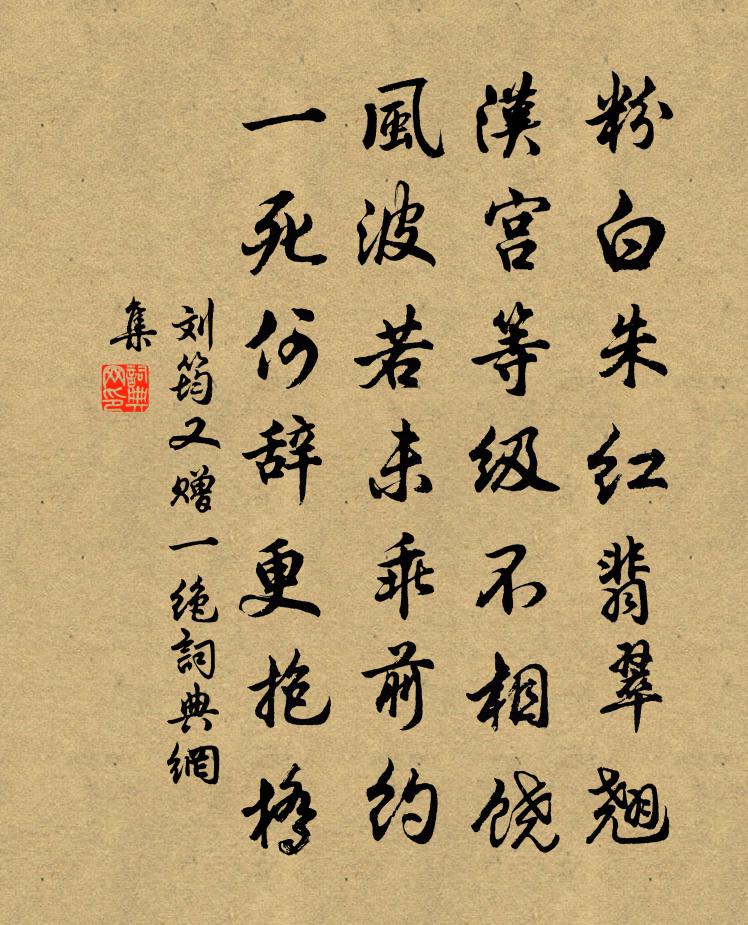 粉白朱红翡翠翘
漢宫等级不相饶
風波若未乖前约
一死何辞更抱橋
刘筠又赠一绝詞典網
集
詞典
网印